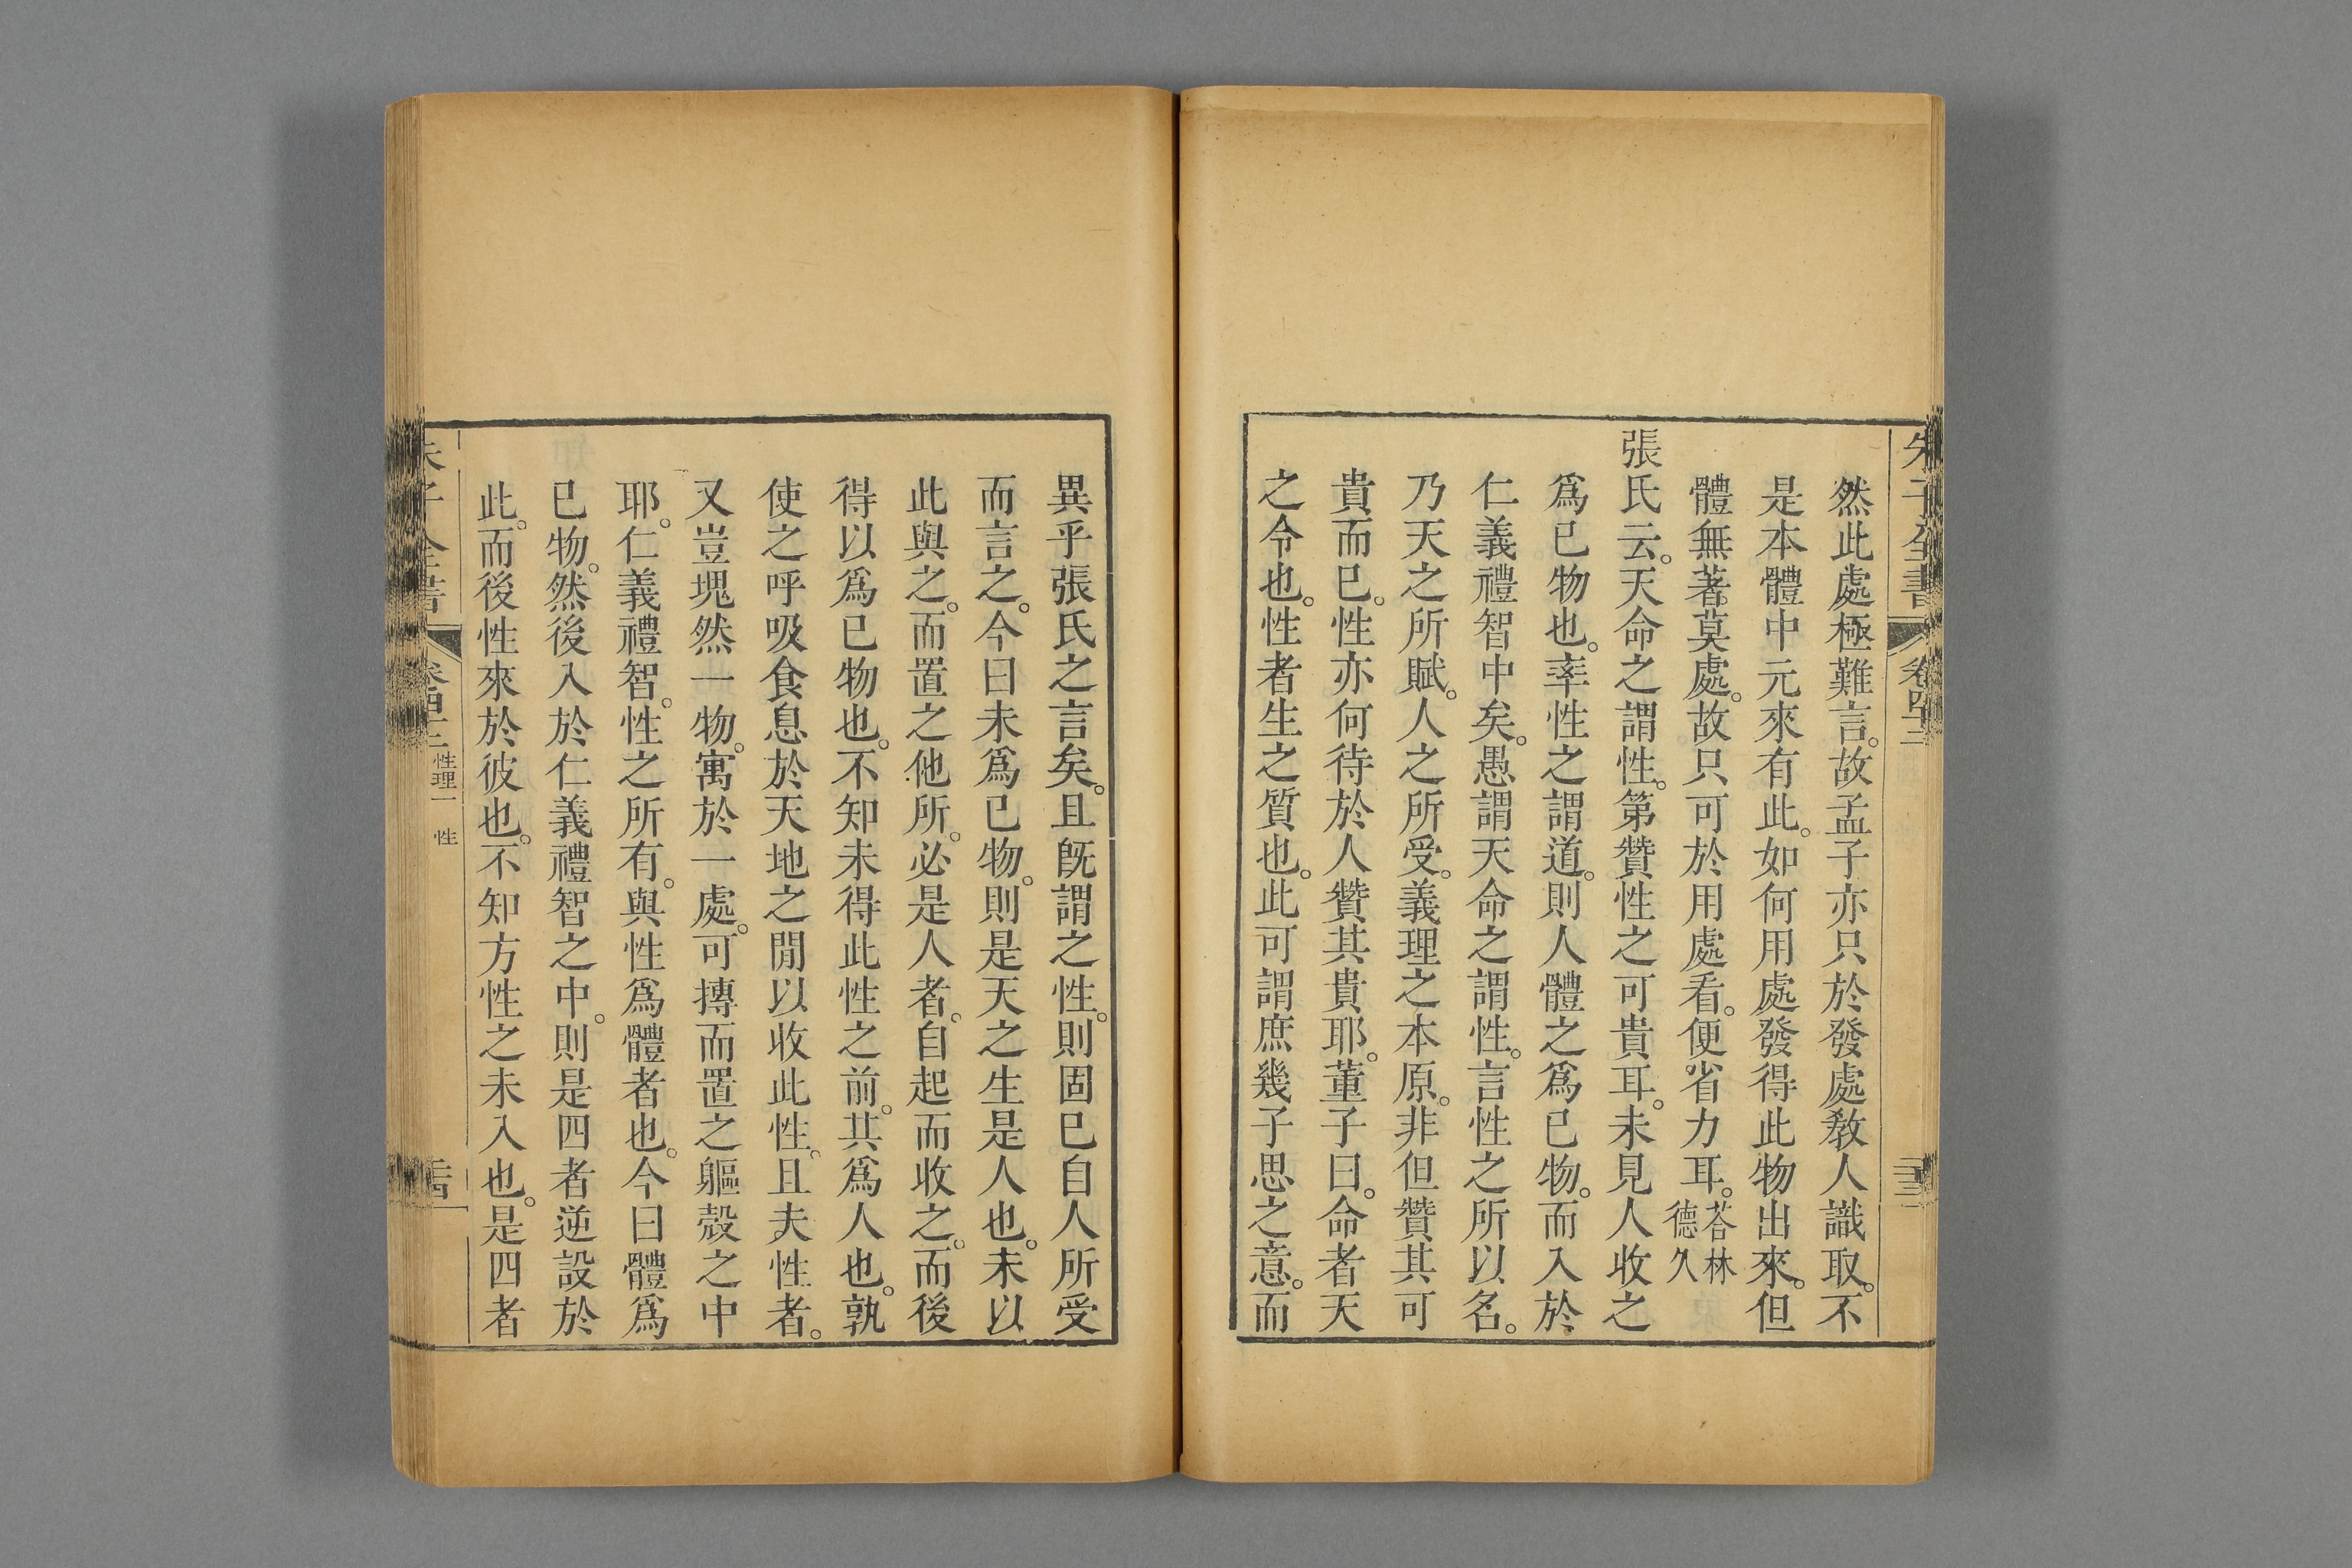 朱子全書 卷四十二
然此處極難言。故孟子亦只於發處敎人識取。不
是本體中元來有此。如何用處發得此物出來。但
體無著莫處。故只可於用處看。便省力耳。荅林德久
張氏云。天命之謂性。第贊性之可貴耳。未見人收之
爲已物也。率性之謂道。則人體之爲已物。而入於
仁義禮智中矣。愚謂天命之謂性。言性之所以名。
乃天之所賦。人之所受。義理之本原。非但贊其可
貴而已。性亦何待於人贊其貴耶。董子曰。命者天
之令也。性者生之質也。此可謂庶幾子思之意。而
異乎張氏之言矣。且旣謂之性。則固已自人所受
而言之。今曰未爲已物。則是天之生是人也。未以
此與之。而置之他所。必是人者。自起而收之。而後
得以爲已物也。不知未得此性之前。其爲人也。孰
使之呼吸食息於天地之閒以收此性。且夫性者。
又豈塊然一物。寓於一處。可摶而置之軀殼之中
耶。仁義禮智。性之所有。與性爲體者也。今曰體爲
已物。然後入於仁義禮智之中。則是四者逆設於
此。而後性來於彼也。不知方性之未入也。是四者
朱子全書 卷四十二 性理一 性